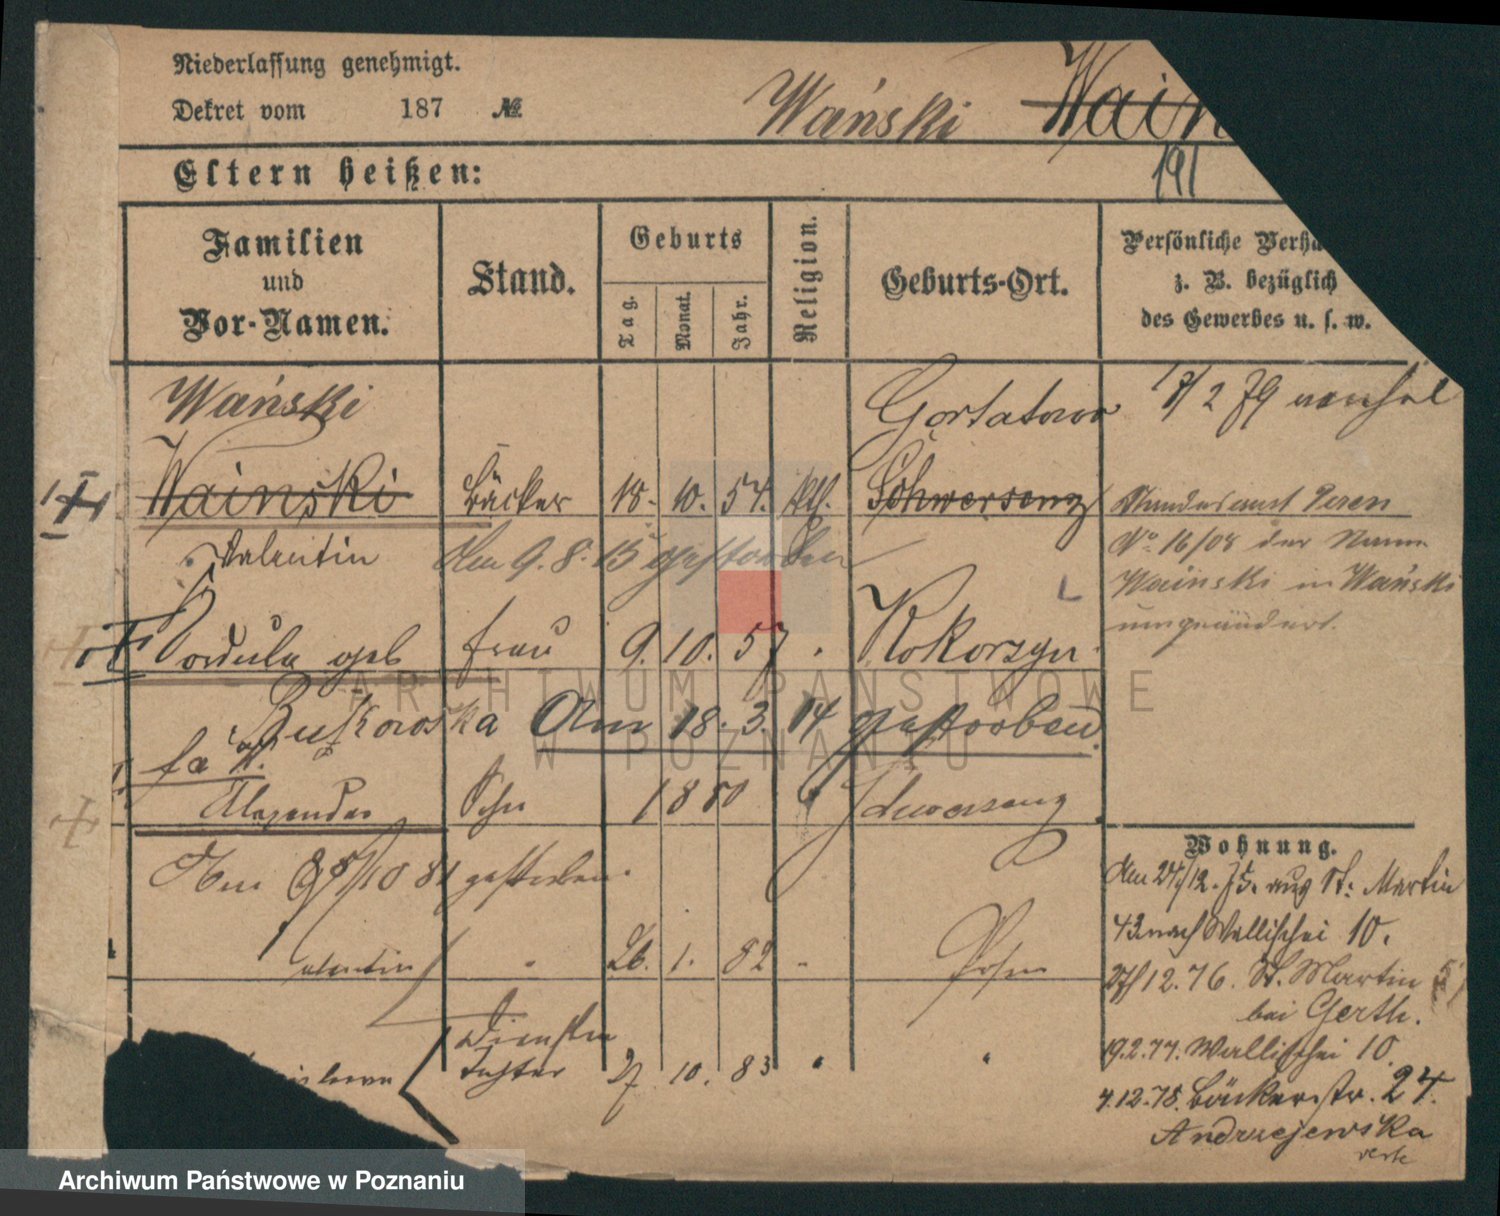 Niederlassung genehmigt.
Dekret vom 187 №
Wański Wain
191
Eltern heißen:
Familien und Vor-Namen.
Stand.
Geburts
Tag. Monat. Jahr.
Religion.
Geburts-Ort.
Persönliche Verhä
z. B. bezüglich
des Gewerbes u. s. w.
Wański Gortatowo 17/2 79
Wainski Bäcker 18. 10. 54. Kth. Schwersenz Standesamt Posen
Valentin den 9. 8. 15 gestorben No 16/08 der Name
Wainski in Wański
umgeändert.
Kordula geb Frau 9. 10. 57 Kokorzyn
Am 18. 3. 14 gestorben.
Alexander Sohn 1880 Schwersenz
Wohnung.
10 81 gestorben.
Den 24/12. 75. aus St. Martin
43 nach Wallischei 10.
Valentin 26. 1. 82 Posen
12. 76. St. Martin
bei Gerth.
Tochter 27 10. 83
19.2.77. Wallischei 10
4.12.78. Bäckerstr. 24.
Andrzejewska
verte
ARCHIWUM PAŃSTWOWE
W POZNANIU
Archiwum Państwowe w Poznaniu